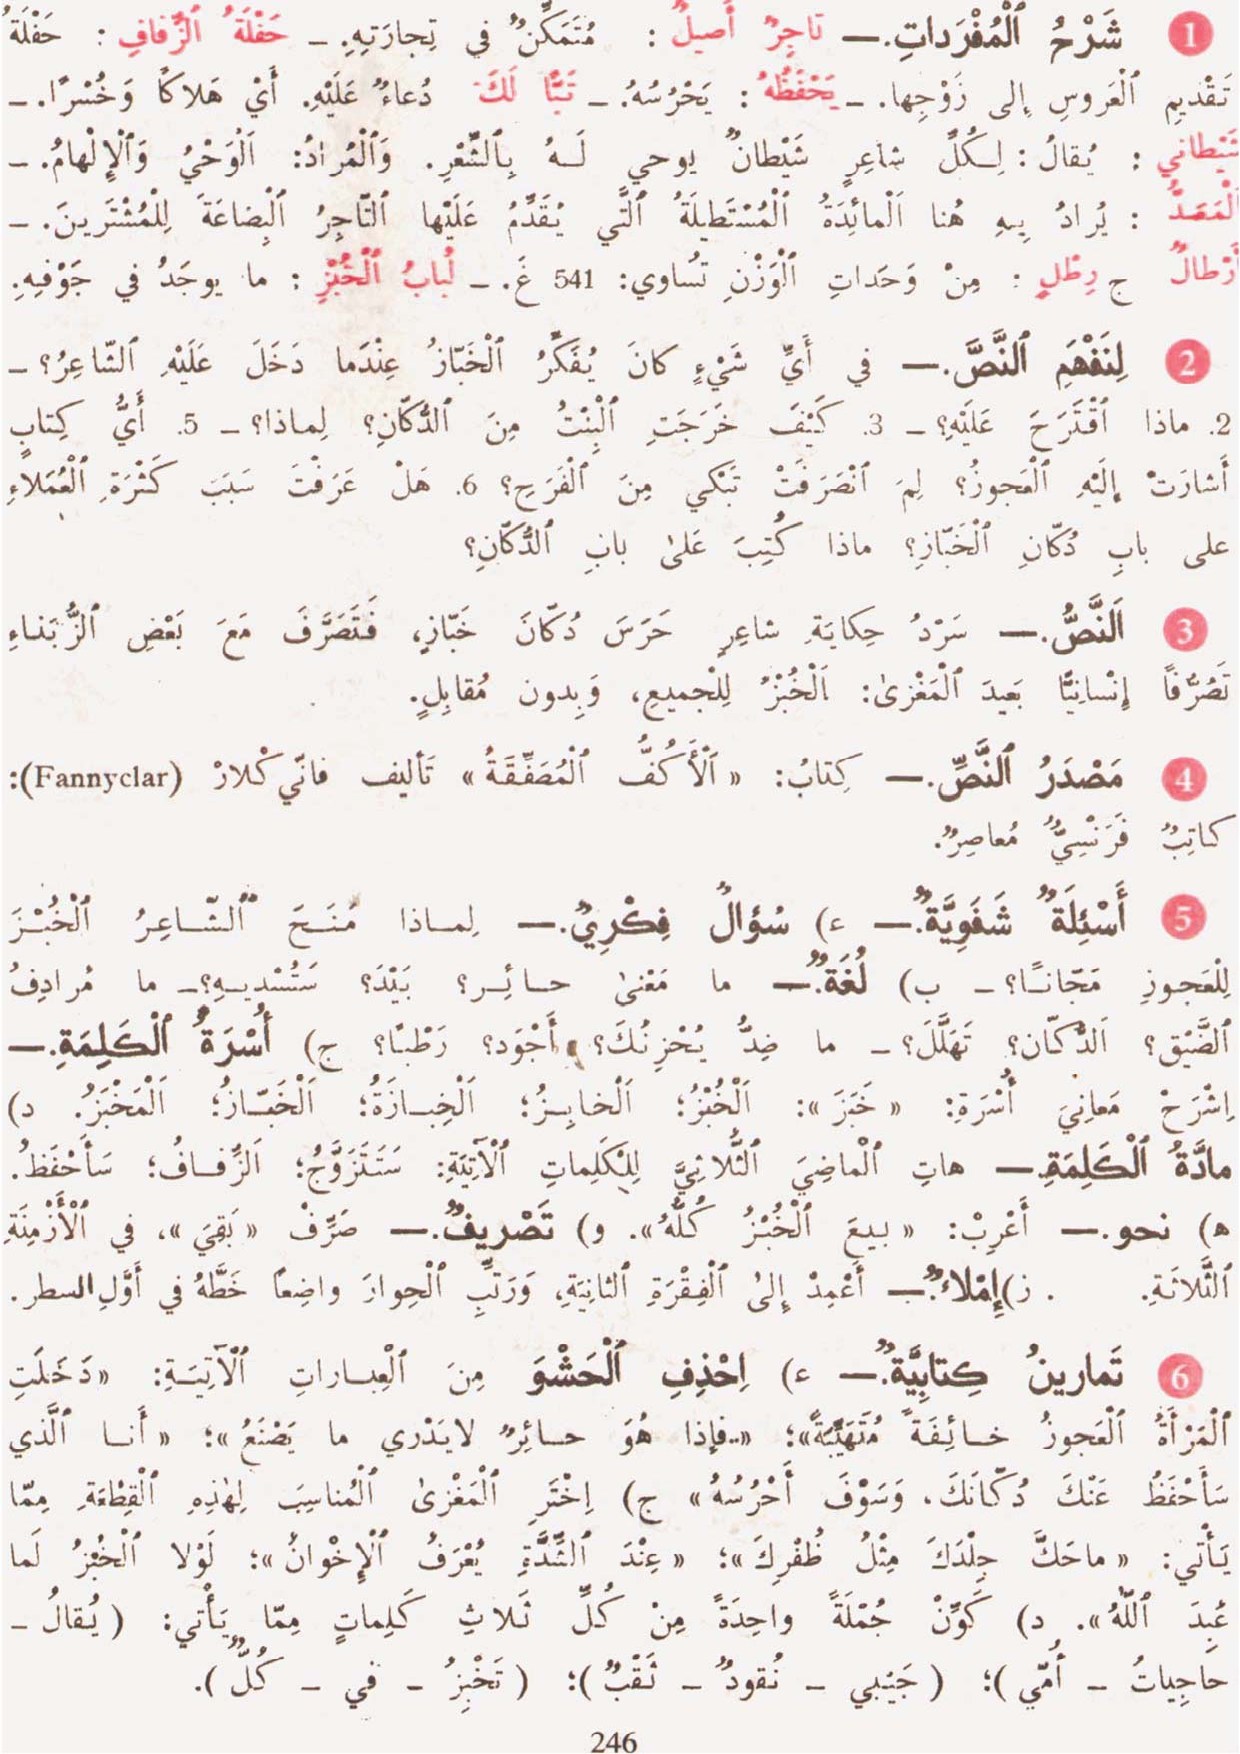 1 شَرْحُ ٱلْمُفْرَداتِ.— تاجِرٌ أَصيلٌ : مُتَمَكِّنٌ في تِجارَتِهِ. – حَفْلَةُ ٱلزَّفافِ : حَفْلَةُ
تَقْديمِ ٱلْعَروسِ إِلى زَوْجِها. – يَحْفَظُهُ : يَحْرُسُهُ. – تَبًّا لَكَ دُعاءٌ عَلَيْهِ. أَيْ هَلاكًا وَخُسْرًا. –
شَيْطاني : يُقالُ : لِكُلِّ شاعِرٍ شَيْطانٌ يوحي لَهُ بِٱلشِّعْرِ. وَٱلْمُرادُ: اَلْوَحْيُ وَٱلْإِلْهامُ. –
اَلْمَعَدُّ : يُرادُ بِهِ هُنا اَلْمائِدَةُ ٱلْمُسْتَطيلَةُ ٱلَّتي يُقَدِّمُ عَلَيْها ٱلتّاجِرُ ٱلْبِضاعَةَ لِلْمُشْتَرينَ. –
أَرْطالٌ ج رِطْلٍ : مِنْ وَحَداتِ ٱلْوَزْنِ تُساوي: 541 غَ. – لُبابُ ٱلْخُبْزِ : ما يوجَدُ في جَوْفِهِ.
2 لِنَفْهَمِ ٱلنَّصَّ.— في أَيِّ شَيْءٍ كانَ يُفَكِّرُ ٱلْخَبّازُ عِنْدَما دَخَلَ عَلَيْهِ ٱلشّاعِرُ؟ –
2. ماذا ٱقْتَرَحَ عَلَيْهِ؟ – 3. كَيْفَ خَرَجَتِ ٱلْبِنْتُ مِنَ ٱلدُّكّانِ؟ لِماذا؟ – 5. أَيُّ كِتابٍ
أَشارَتْ إِلَيْهِ ٱلْعَجوزُ؟ لِمَ ٱنْصَرَفَتْ تَبْكي مِنَ ٱلْفَرَحِ؟ 6. هَلْ عَرَفْتَ سَبَبَ كَثْرَةِ ٱلْعُمَلاءِ
على بابِ دُكّانِ ٱلْخَبّازِ؟ ماذا كُتِبَ عَلىٰ بابِ ٱلدُّكّانِ؟
3 اَلنَّصُّ.— سَرْدُ حِكايَةِ شاعِرٍ حَرَسَ دُكّانَ خَبّازٍ، فَتَصَرَّفَ مَعَ بَعْضِ ٱلزُّبَناءِ
تَصَرُّفًا إِنْسانِيًّا بَعيدَ ٱلْمَغْزىٰ: اَلْخُبْزُ لِلْجميعِ، وَبِدون مُقابِلٍ.
4 مَصْدَرُ ٱلنَّصِّ.— كِتابُ: « اَلْأَكُفُّ ٱلْمُصَفِّقَةُ » تَأليف فانّي كْلارْ (Fannyclar):
كاتِبٌ فَرَنْسِيٌّ مُعاصِرٌ.
5 أَسْئِلَةٌ شَفَوِيَّةٌ.— ء) سُؤالٌ فِكْرِيٌّ.— لِماذا مَنَحَ ٱلشّاعِرُ ٱلْخُبْزَ
لِلْعَجوزِ مَجّانًا؟ – ب) لُغَةٌ.— ما مَعْنىٰ حائِر؟ بَيْدَ؟ سَتُسْديهِ؟– ما مُرادِفُ
ٱلضَّيْق؟ اَلدُّكّان؟ تَهَلَّلَ؟ – ما ضِدُّ يُحْزِنُكَ؟ أَجْوَد؟ رَطْبًا؟ ج) أُسْرَةُ ٱلْكَلِمَةِ.—
اِشْرَحْ مَعانِيَ أُسْرَةِ: « خَبَزَ »: اَلْخُبْزُ؛ اَلْخابِزُ؛ اَلْخِبازَةُ؛ اَلْخَبّازُ؛ اَلْمَخْبَزُ. د)
مادَّةُ ٱلْكَلِمَةِ.— هاتِ ٱلْماضِيَ ٱلثُّلاثِيَّ لِلْكَلِماتِ ٱلْآتِيَةِ: سَتَتَزَوَّجُ؛ اَلزِّفافُ؛ سَأَحْفَظُ.
ه) نحو.— أَعْرِبْ: « بيعَ ٱلْخُبْزُ كُلُّهُ». و) تَصْريفٌ.— صَرِّفْ « بَقِيَ »، في ٱلْأَزْمِنَةِ
ٱلثَّلاثَةِ. ز) إِمْلاءٌ.— أَعْمِدْ إِلىٰ ٱلْفِقْرَةِ ٱلثانِيَةِ، وَرَتِّبِ ٱلْحِوارَ واضِعًا خَطَّهُ في أَوَّلِ السطر.
6 تَمارينُ كِتابِيَّةٌ.— ء) اِحْذِفِ ٱلْحَشْوَ مِنَ ٱلْعِباراتِ ٱلْآتِيَةِ: «دَخَلَتِ
ٱلْمَرْأَةُ ٱلْعَجوزُ خائِفَةً مُتَهَيِّبَةً»؛ «..فإِذا هُوَ حائِرٌ لايَدْري ما يَصْنَعُ»؛ « أَنا ٱلَّذي
سَأَحْفَظُ عَنْكَ دُكّانَكَ، وَسَوْفَ أَحْرُسُهُ» ج) اِخْتَرِ ٱلْمَغْزىٰ ٱلْمُناسِبَ لِهٰذِهِ ٱلْقِطْعَةِ مِمّا
يَأْتي: « ماحَكَّ جِلْدَكَ مِثْلُ ظُفْرِكَ»؛ « عِنْدَ ٱلشِّدَّةِ يُعْرَفُ ٱلْإِخْوانُ»؛ لَوْلا ٱلْخُبْزُ لَما
عُبِدَ ٱللّٰهُ». د) كَوِّنْ جُمْلَةً واحِدَةً مِنْ كُلِّ ثَلاثِ كَلِماتٍ مِمّا يَأْتي: ( يُقالُ –
حاجِياتُ – أُمّي )؛ ( جَيْبي – نُقودٌ – ثَقْبٌ )؛ ( تَخْبِزُ – في – كُلٌّ ).
246